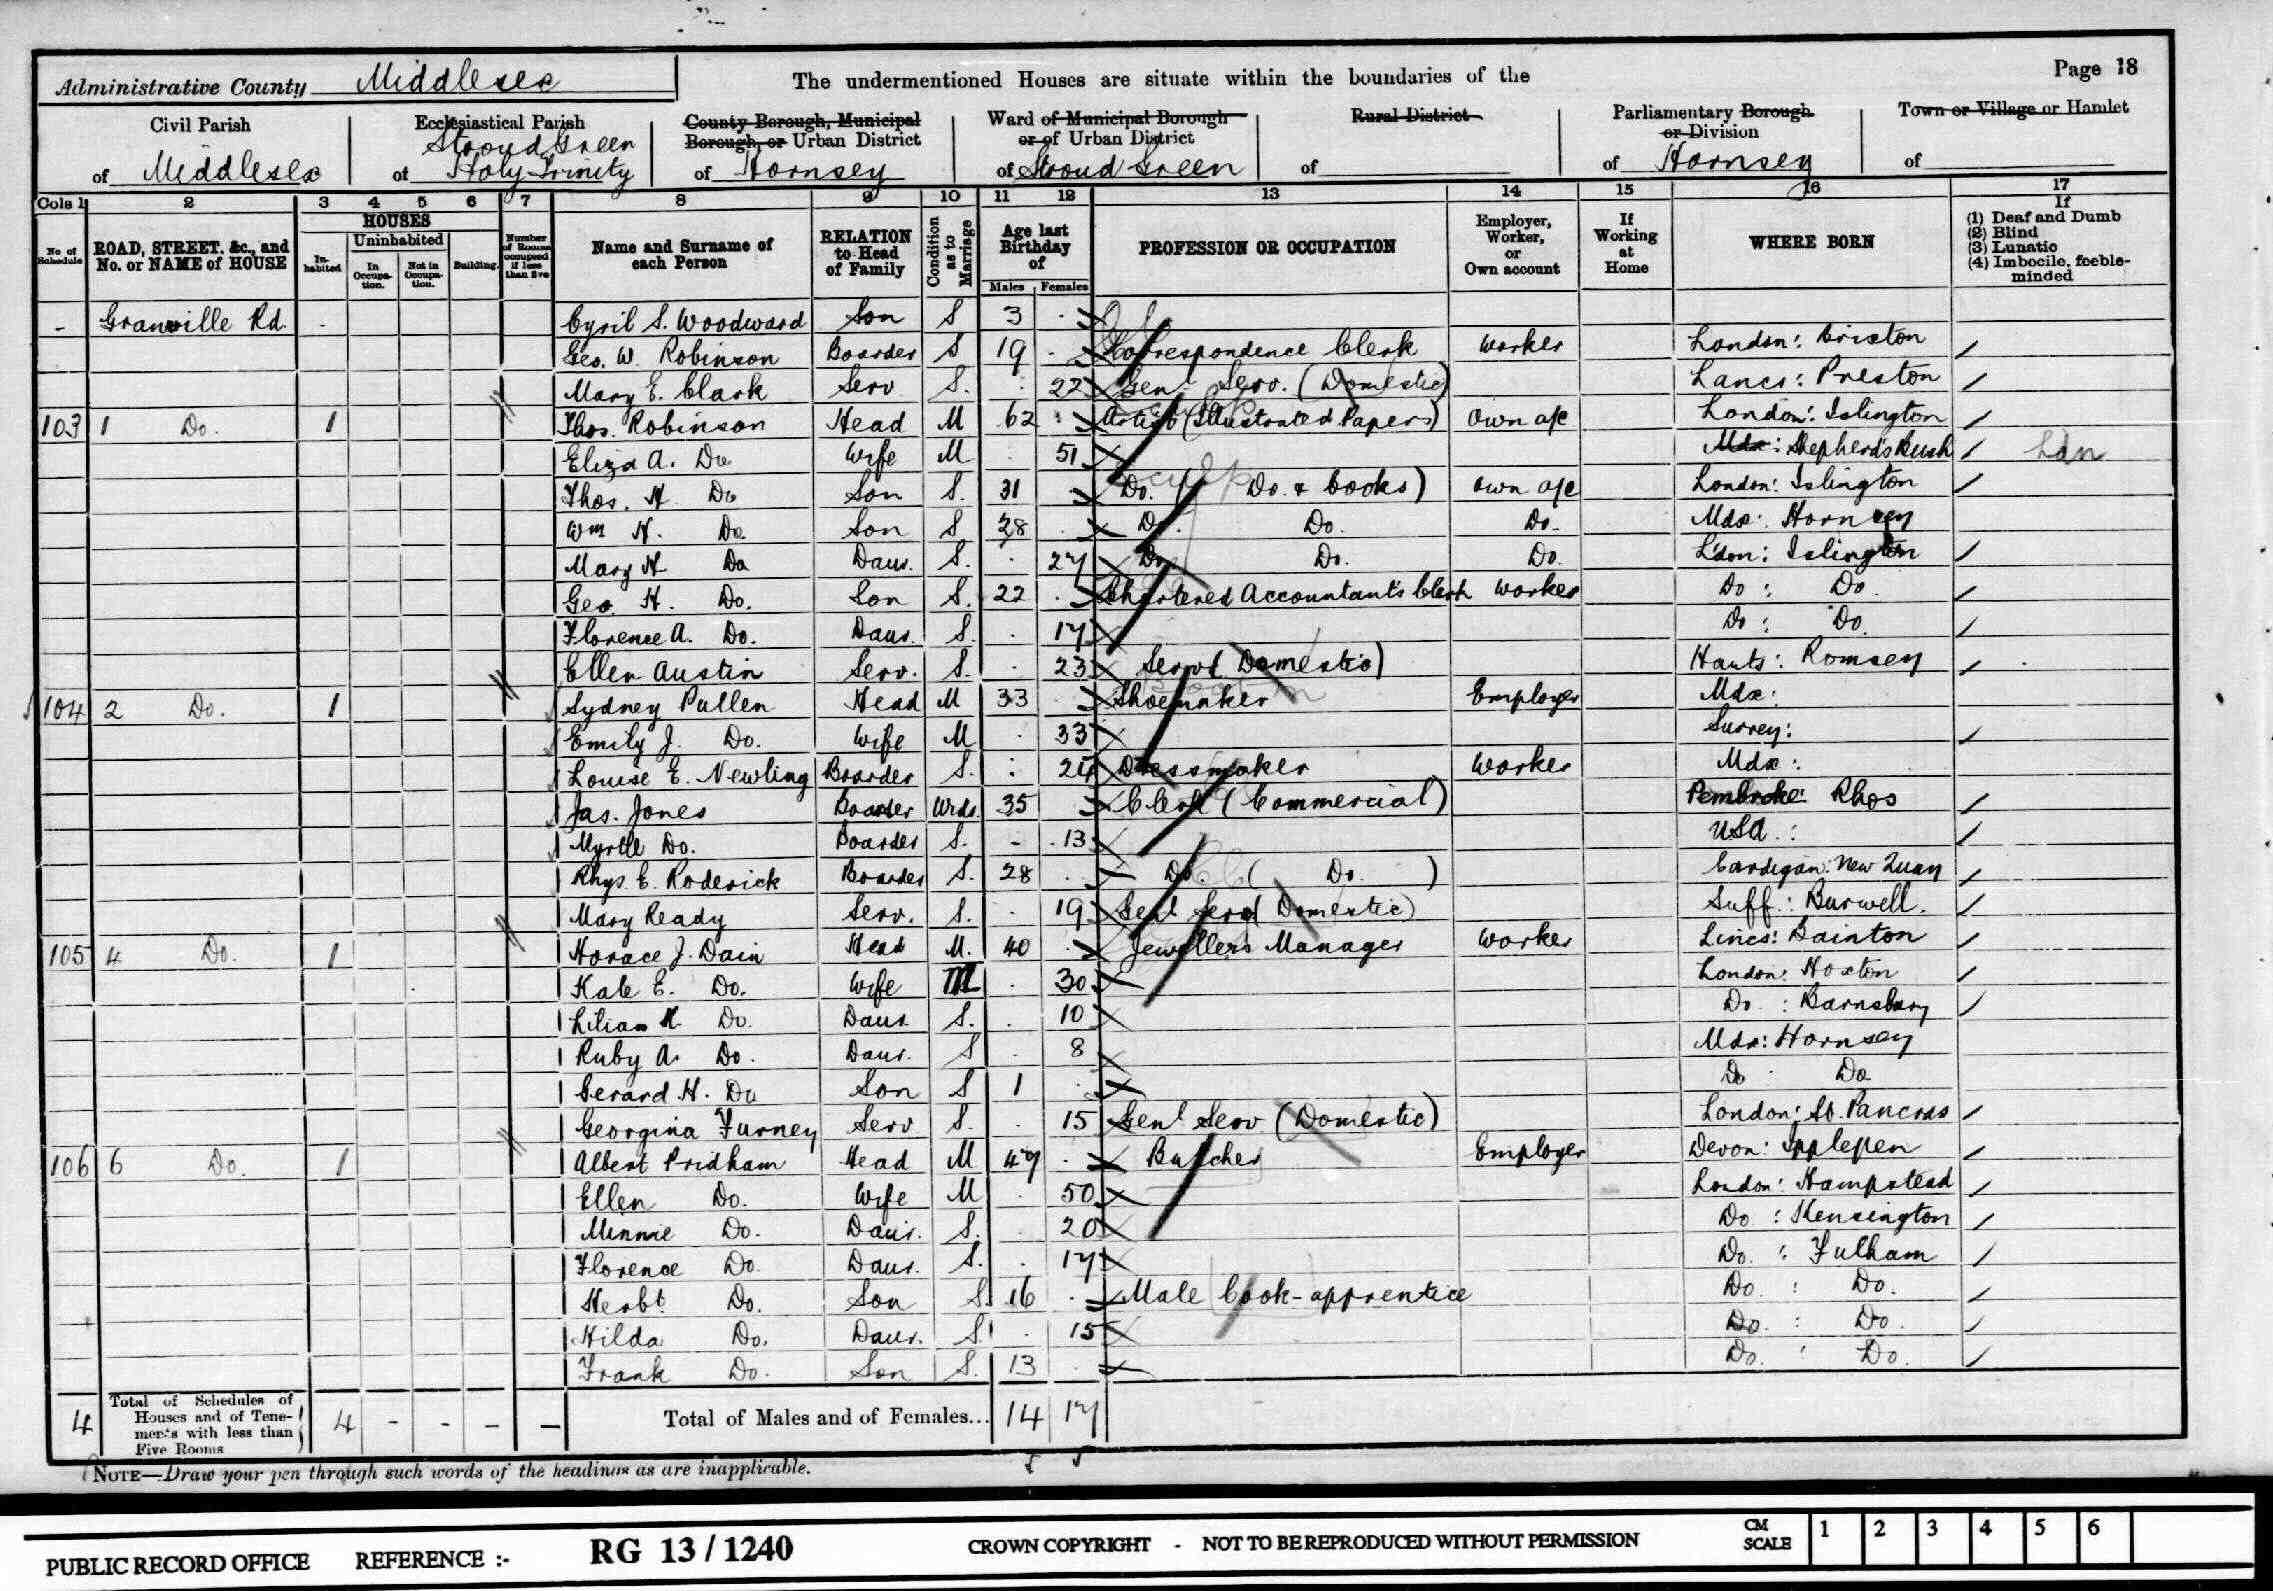 Page 18
Administrative County Middlesex The undermentioned Houses are situate within the boundaries of the
Civil Parish of Middlesex
Ecclesiastical Parish of Stroud Green Holy Trinity
County Borough, Municipal Borough, or Urban District of Hornsey
Ward of Municipal Borough or of Urban District of Stroud Green
Rural District of
Parliamentary Borough or Division of Hornsey
Town or Village or Hamlet of
Cols 1 2 3 4 5 6 7 8 9 10 11 12 13 14 15 16 17
No of Schedule
ROAD, STREET, &c., and No. or NAME of HOUSE
HOUSES
In-habited
Uninhabited
In Occupa-tion.
Not in Occupa-tion.
Building.
Number of Rooms occupied if less than five
Name and Surname of each Person
RELATION to Head of Family
Condition as to Marriage
Age last Birthday of
Males Females
PROFESSION OR OCCUPATION
Employer, Worker, or Own account
If Working at Home
WHERE BORN
If
(1) Deaf and Dumb
(2) Blind
(3) Lunatic
(4) Imbecile, feeble-minded
- Granville Rd. Cyril S. Woodward Son S 3
Geo. W. Robinson Boarder S 19 Correspondence Clerk Worker London: Brixton
Mary E. Clark Serv S. 22 Genl Serv. (Domestic) Lancs: Preston
103 1 Do. 1 Thos. Robinson Head M 62 Artist (Illustrated Papers) Own a/c London: Islington
Eliza A. Do Wife M 51 Mdx: Shepherds Bush Lon
Thos. H. Do Son S. 31 Do. ( Do. & books) Own a/c London: Islington
Wm H. Do. Son S 28 Do. Do. Do. Mdx: Hornsey
Mary H Do Daur. S. 27 Do. Do. Do. L'don: Islington
Geo. H. Do. Son S. 22 Chartered Accountants Clerk Worker Do: Do
Florence A. Do. Daur. S. 17 Do: Do
Ellen Austin Serv. S. 23 Servt Domestic) Hants: Romsey
104 2 Do. 1 Sydney Pullen Head M 33 Shoemaker Employer Mdx:
Emily J. Do. Wife M 33 Surrey:
Louise E. Newling Boarder S. 24 Dressmaker Worker Mdx:
Jas. Jones Boarder Wrds. 35 Clerk (Commercial) Pembroke: Rhos
Myrtle Do. Boarder S. - 13 USA.:
Rhys. E. Roderick Boarder S. 28 Do. ( Do. ) Cardigan: New Quay
Mary Ready Serv. S. 19 Genl Servt Domestic) Suff.: Burwell.
105 4 Do. 1 Horace J. Dain Head M. 40 Jewellers Manager Worker Lincs: Bainton
Kate E. Do. Wife M 30 London: Hoxton
Lilian K. Do. Daur. S. 10 Do: Barnsbury
Ruby A. Do. Daur. S 8 Mdx: Hornsey
Gerard H. Do Son S 1 Do Do
Georgina Furney Serv S. 15 Genl Serv (Domestic) London: St. Pancras
106 6 Do. 1 Albert Pridham Head M 47 Butcher Employer Devon: Ipplepen
Ellen Do. Wife M 50 London: Hampstead
Minnie Do. Daur. S. 20 Do: Kensington
Florence Do. Daur. S. 17 Do.: Fulham
Herbt. Do. Son S. 16 Male Cook-apprentice Do: Do.
Hilda Do. Daur. S. 15 Do.: Do.
Frank Do. Son S. 13 Do. Do.
4 Total of Schedules of Houses and of Tene-ments with less than Five Rooms 4 - - - - Total of Males and of Females... 14 17
NOTE—Draw your pen through such words of the headings as are inapplicable.
PUBLIC RECORD OFFICE REFERENCE :- RG 13 / 1240 CROWN COPYRIGHT - NOT TO BE REPRODUCED WITHOUT PERMISSION CM SCALE 1 2 3 4 5 6